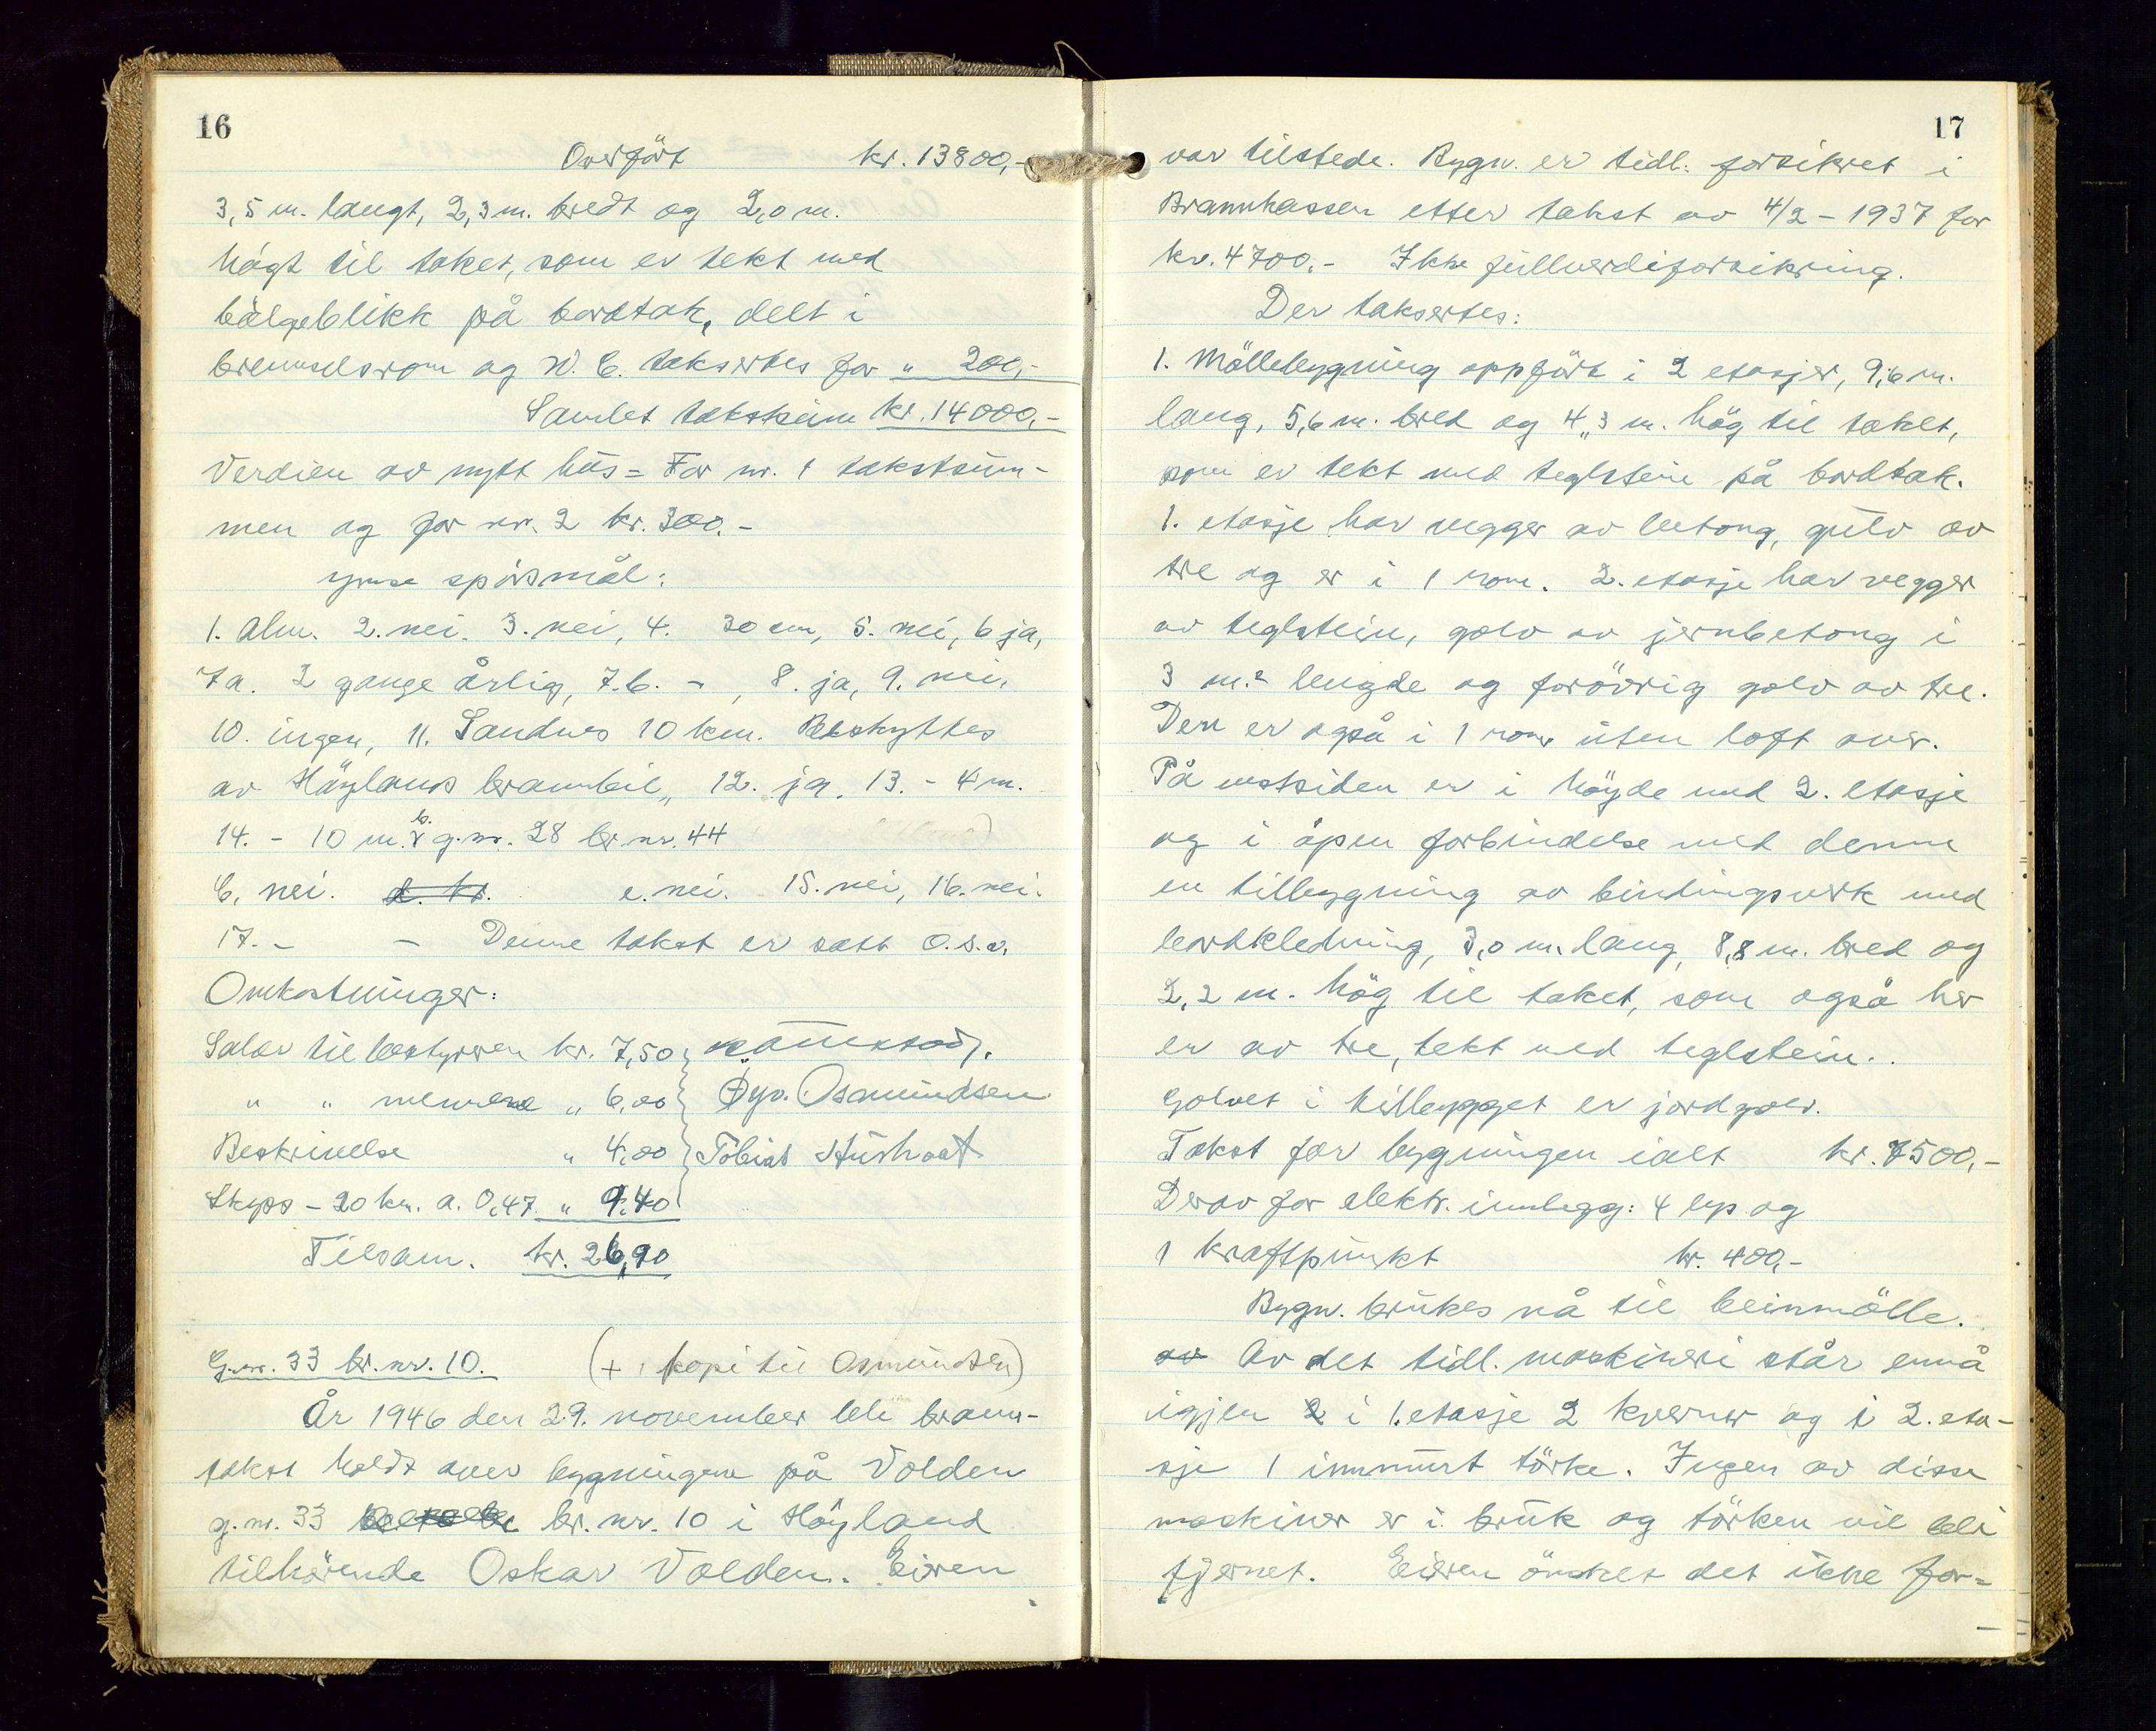 16
Overfört kr. 13800,-
3,5 m. langt, 2,3 m. bredt og 2,0 m.
högt til taket, som er tekt med
bölgeblikk på bordtak, delt i
bremselsrom og W.C. taksertes for " 200,-
Samlet takstsum kr. 14000,-
Verdien av nytt hus = For nr. 1 takstsum-
men og for nr. 2 kr. 300.-
ymse spörsmål:
1. alm. 2. nei. 3. nei, 4. 30 cm, 5. nei, 6 ja,
7a. 2 gange årlig, 7.b. - , 8. ja, 9. nei,
10. ingen, 11. Sandnes 10 km. Beskyttes
av Höylands brannbil, 12. ja. 13. - 4 m.
14. - 10 m. b. g.nr. 28 br.nr. 44
C. nei. d. kr. e. nei. 15. nei, 16. nei.
17. - - Denne takst er satt o.s.v.
Omkostninger:
Salær til bestyreren kr. 7,50
" " mennene " 6,00 Øyv. Osmundsen
Beskrivelse " 4,00 Tobias
Skyss - 20 km. a. 0,47 " 9,40
Tilsam. kr. 26,90
G.nr. 33 br.nr. 10. (+ 1 kopi til Osmundsen)
År 1946 den 29. november ble brann-
takst holdt over bygningene på Volden
g.nr. 33 br. nr. 10 i Höyland
tilhörende Oskar Volden. Eieren
17
var tilstede. Bygn. er tidl. forsikret i
Brannkassen etter takst av 4/2 - 1937 for
kr. 4700.- Ikke fullverdiforsikring.
Der taksertes:
1. Möllebygning oppfört i 2 etasjer, 9,6 m.
lang, 5,6 m. bred og 4,3 m. hög til taket,
som er tekt med teglstein på bordtak.
1. etasje har vegger av betong, gulv av
tre og er i 1 rom. 2. etasje har vegger
av teglstein, golv av jernbetong i
3 m.² lengde og forövrig golv av tre.
Den er også i 1 rom uten loft over.
På vestsiden er i höyde med 2. etasje
og i åpen forbindelse med denne
en tilbygning av bindingsverk med
bordkledning, 3,0 m. lang, 8,8 m. bred og
2,2 m. hög til taket, som også her
er av tre, tekt med teglstein.
Golvet i tilbygget er jordgolv.
Takst for bygningen ialt kr. 7500,-
Derav for elektr. innlegg: 4 lys og
1 kraftpunkt kr. 400,-
Bygn. brukes nå til beinmölle.
av Av det tidl. maskineri står ennå
igjen 2 i 1. etasje 2 kverner og i 2. eta-
sje 1 innmurt törke. Ingen av disse
maskiner er i bruk og törken vil bli
fjernet. Eieren önsket det ikke for-